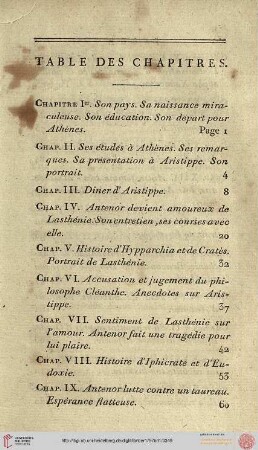 TABLE DES CHAPITRES.
Chapitre Ier. Son pays. Sa naissance mira-
culeuse. Son éducation. Son départ pour
Athènes. Page 1
Chap. II. Ses études à Athènes. Ses remar-
ques. Sa présentation à Aristippe. Son
portrait. 4
Chap. III. Dîner d'Aristippe. 8
Chap. IV. Antenor devient amoureux de
Lasthénie. Son entretien, ses courses avec
elle. 20
Chap. V. Histoire d'Hypparchia et de Cratès.
Portrait de Lasthénie. 32
Chap. VI. Accusation et jugement du phi-
losophe Cléanthe. Anecdotes sur Aris-
tippe. 37
Chap. VII. Sentiment de Lasthénie sur
l'amour. Antenor fait une tragédie pour
lui plaire. 42
Chap. VIII. Histoire d'Iphicrate et d'Eu-
doxie. 53
Chap. IX. Antenor lutte contre un taureau.
Espérance flatteuse. 60